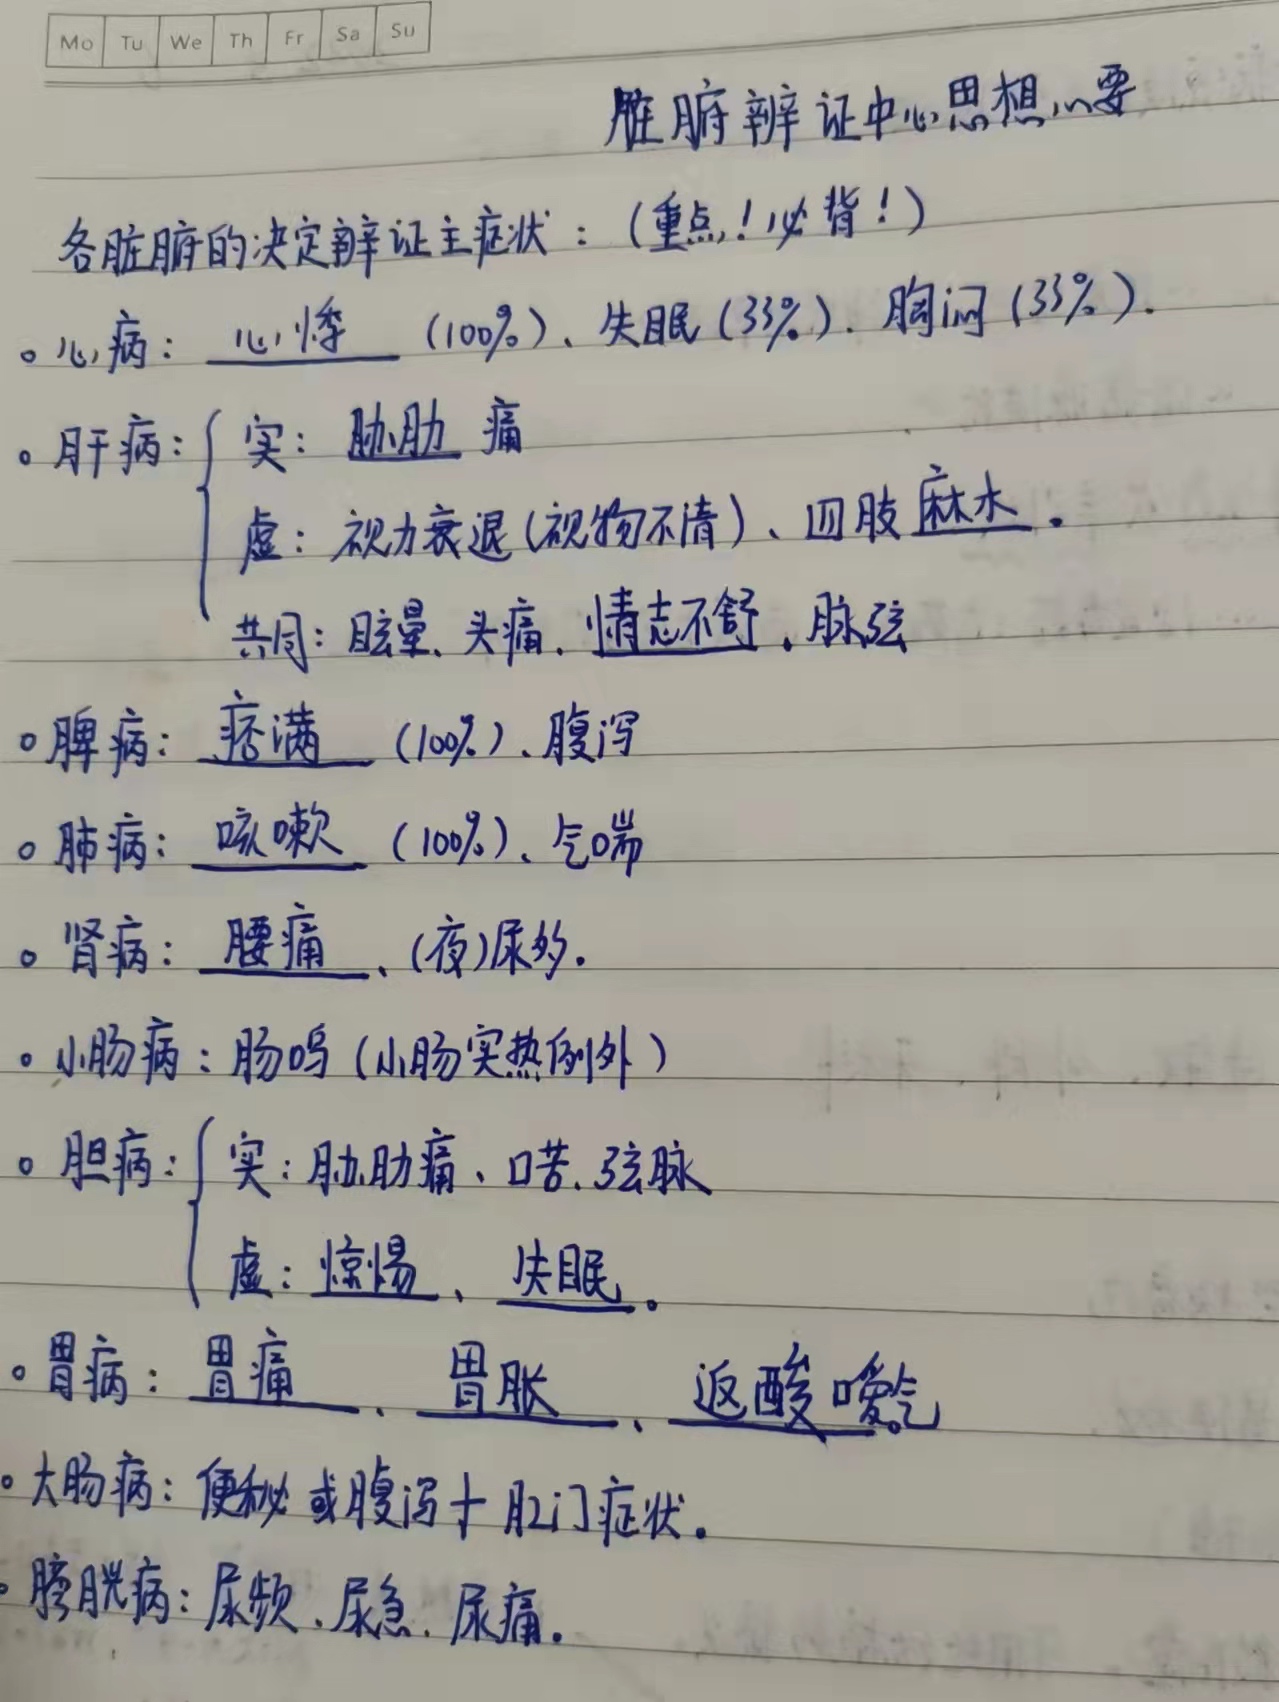 Mo Tu We Th Fr Sa Su
脏腑辨证中心思想心要
各脏腑的决定辨证主症状：（重点！必背！）
。心病：心悸（100%）、失眠（33%）、胸闷（33%）.
。肝病：实：胁肋痛
虚：视力衰退（视物不清）、四肢麻木。
共同：眩晕、头痛、情志不舒、脉弦
。脾病：痞满（100%）、腹泻
。肺病：咳嗽（100%）、气喘
。肾病：腰痛、（夜）尿多.
。小肠病：肠鸣（小肠实热例外）
。胆病：实：胁肋痛、口苦、弦脉
虚：惊惕、失眠。
。胃病：胃痛、胃胀、返酸嗳气
。大肠病：便秘或腹泻+肛门症状。
。膀胱病：尿频、尿急、尿痛。